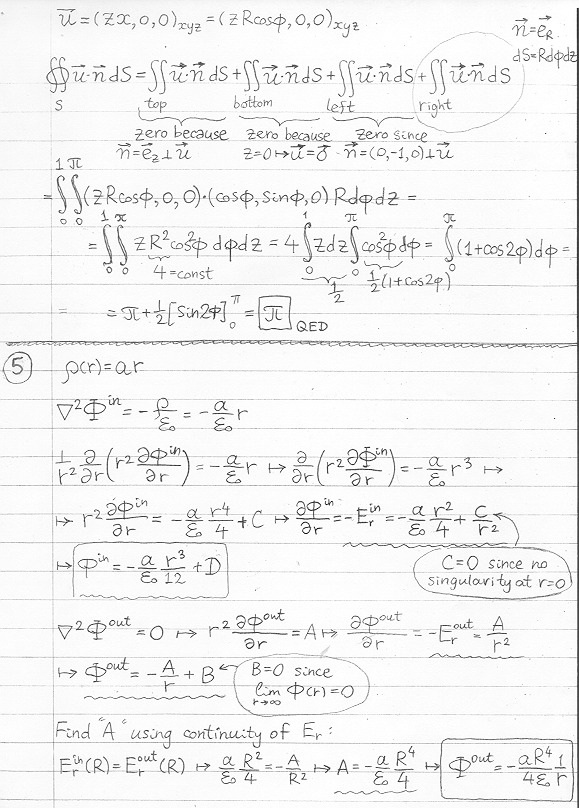 u⃗ = (zx, 0, 0)xyz = (zRcosφ, 0, 0)xyz n⃗ = e⃗R
dS = Rdφdz
∯ u⃗·n⃗ dS = ∬ u⃗·n⃗ dS + ∬ u⃗·n⃗ dS + ∬ u⃗·n⃗ dS + ∬ u⃗·n⃗ dS
S top bottom left right
zero because zero because zero since
n⃗ = e⃗z ⊥ u⃗ z=0 ↦ u⃗ = 0⃗ n⃗ = (0,-1,0) ⊥ u⃗
= ∫₀¹ ∫₀^π (zRcosφ, 0, 0)·(cosφ, sinφ, 0) Rdφdz =
= ∫₀¹ ∫₀^π z R² cos²φ dφdz = 4 ∫₀¹ zdz ∫₀^π cos²φ dφ = ∫₀^π (1+cos2φ)dφ =
4=const 1/2 1/2(1+cos2φ)
= = π + 1/2 [sin2φ]₀^π = π QED
5 ρ(r) = ar
∇²Φ^in = -ρ/ε₀ = -a/ε₀ r
1/r² ∂/∂r (r² ∂Φ^in/∂r) = -a/ε₀ r ↦ ∂/∂r (r² ∂Φ^in/∂r) = -a/ε₀ r³ ↦
↦ r² ∂Φ^in/∂r = -a/ε₀ r⁴/4 + C ↦ ∂Φ^in/∂r = -E_r^in = -a/ε₀ r²/4 + C/r²
↦ Φ^in = -a/ε₀ r³/12 + D
C=0 since no
singularity at r=0
∇²Φ^out = 0 ↦ r² ∂Φ^out/∂r = A ↦ ∂Φ^out/∂r = -E_r^out = A/r²
↦ Φ^out = -A/r + B
B=0 since
lim r→∞ Φ(r) = 0
Find "A" using continuity of E_r:
E_r^in(R) = E_r^out(R) ↦ a/ε₀ R²/4 = -A/R² ↦ A = -a/ε₀ R⁴/4 ↦ Φ^out = -aR⁴/4ε₀ 1/r